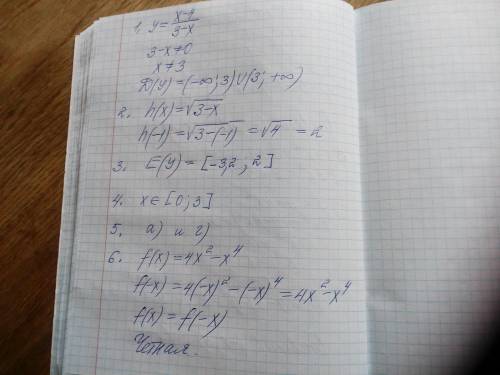 1. y = (x-4)/(3-x)
3-x≠0
x≠3
D(y)=(-∞;3)∪(3;+∞)
2. h(x)=√(3-x)
h(-1)=√(3-(-1)) = √4 = 2
3. E(y) = [-3,2 ; 2]
4. x∈[0;3]
5. а) и г)
6. f(x)=4x²-x⁴
f(-x)=4(-x)²-(-x)⁴=4x²-x⁴
f(x)=f(-x)
Четная.